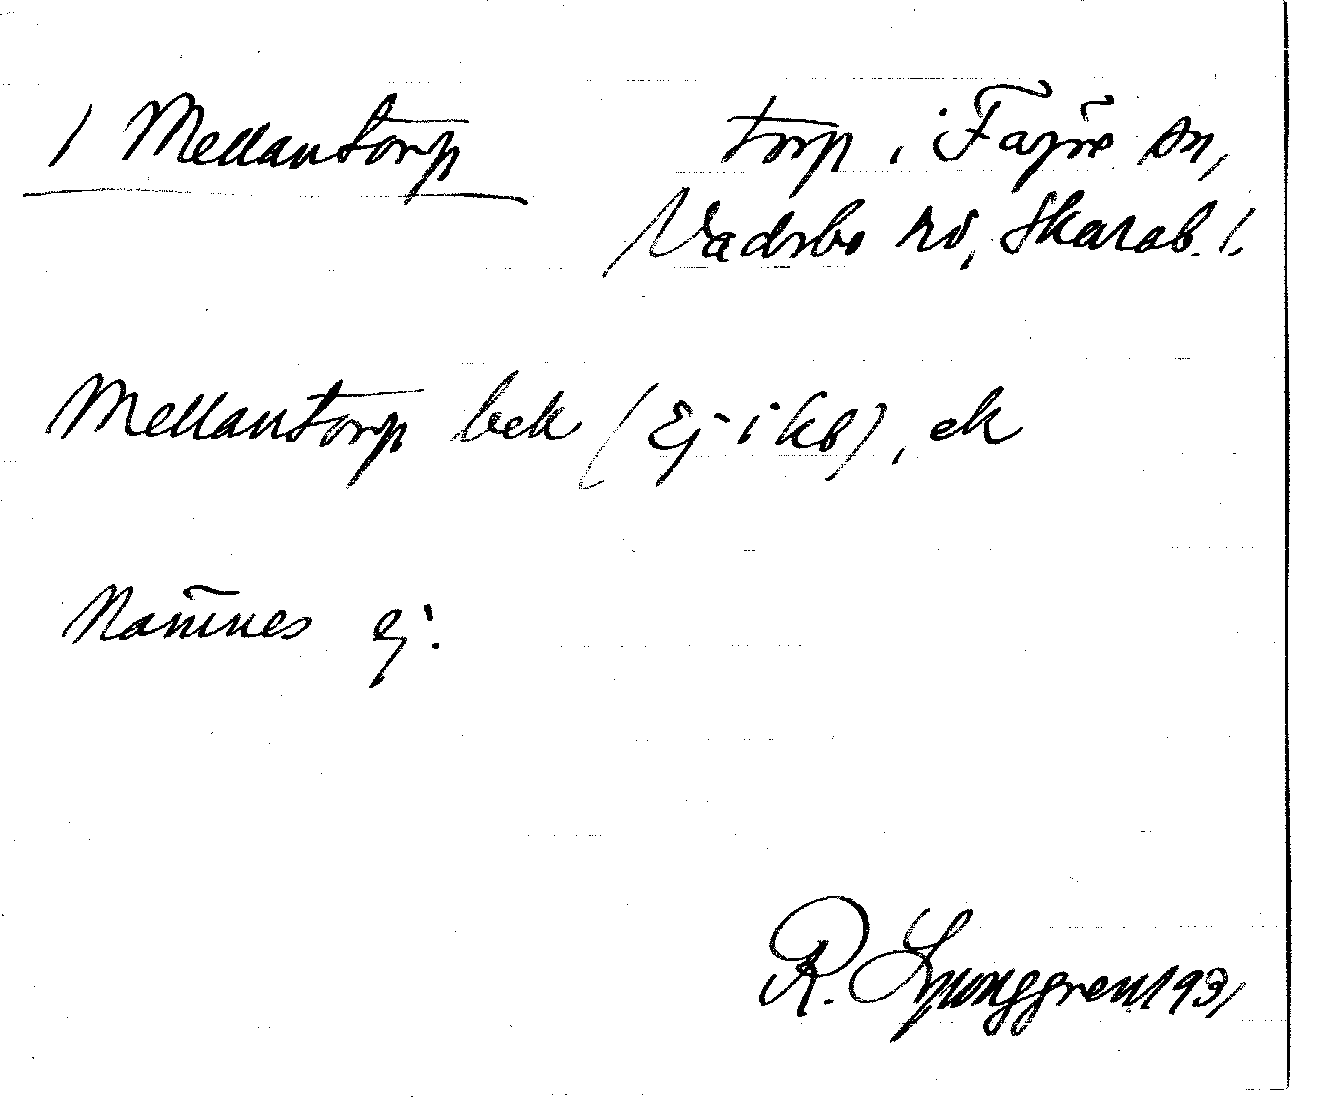 1 Mellantorp torp i Fägre sn,
Vadsbo hd, Skarab. l.
Mellantorp bek (Ej i kb), ek
Namnes ej.
R. Ljunggren 1931